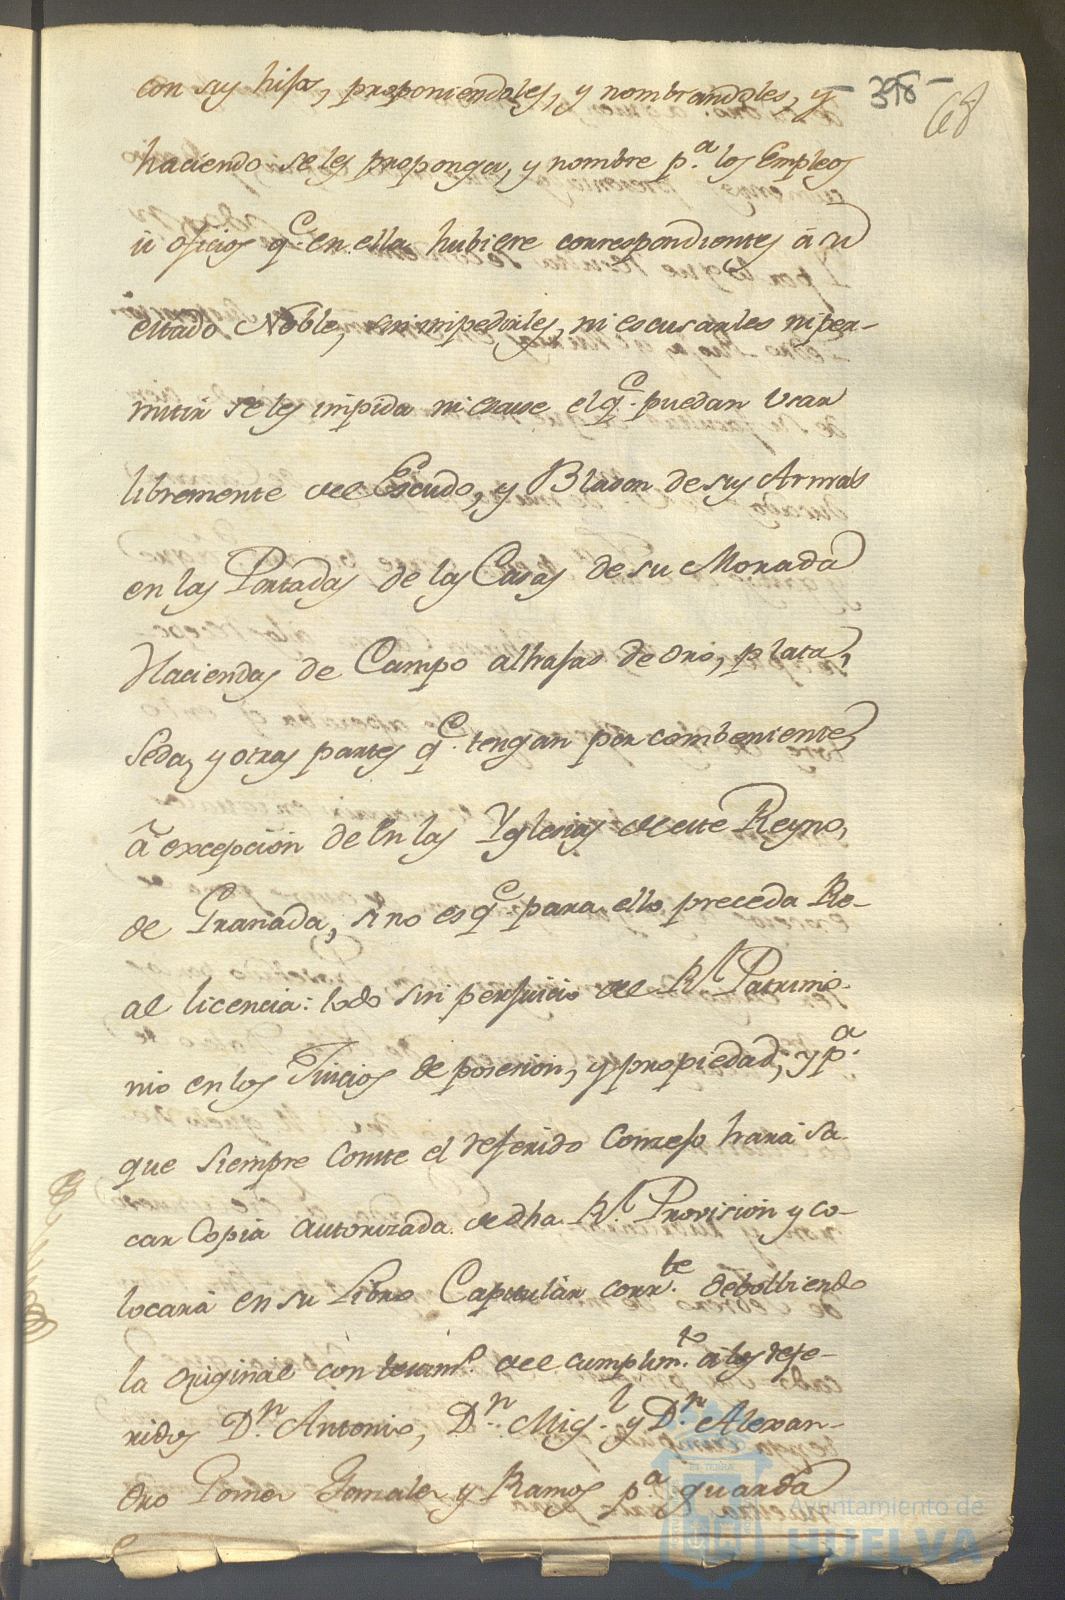 con sus hijos, proponiendoles, y nombrandoles, y
398
68
haciendo se les proponga, y nombre p.ª los Empleos
ù oficios q.e en ella hubiere correspondientes à su
estado Noble, sin impedirles, ni escusarles ni per-
mitir se les impida ni escuse el q.e puedan usar
libremente del Escudo, y Blason de sus Armas
en las Portadas de las Casas de su Morada
Haciendas de Campo alhajas de oro, plata,
seda, y otras partes q.e tengan por combeniente,
à excepcion de en las Yglesias de este Reyno,
de Granada, sino es q.e para ello preceda Re-
al licencia: todo sin perjuicio del R.l Patrimo-
nio en los Juicios de posesion, y propiedad, y p.ª
que siempre conste el referido Concejo hara sa-
car Copia autorizada de dha R.l Provision y co-
locara en su Libro Capitular corr.te debolbiendo
la original con texim.o del cumplim.to a los refe-
ridos D.n Antonio, D.n Mig.l y D.n Alexan-
dro Pomer Gonzalez y Ramos p.ª guarda
Ayuntamiento de
HUELVA